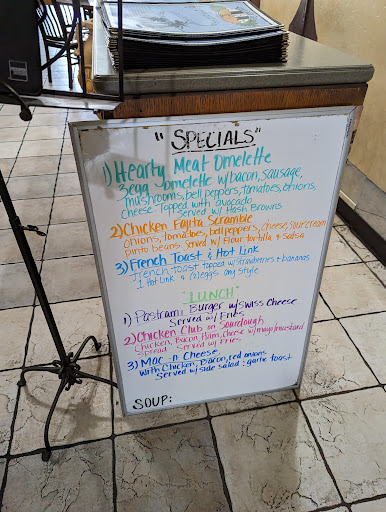 "SPECIALS"
1) Hearty Meat Omelette
3egg omelette w/bacon, sausage,
mushrooms, bell peppers, tomatoes, onions,
cheese Topped with avocado
Served w/ Hash Browns
2) Chicken Fajita Scramble
onions, tomatoes, bell peppers, cheese, sour cream
pinto beans Served w/ Flour tortilla & Salsa
3) French Toast & Hot Link
French toast topped w/strawberries & bananas
1 Hot Link & (2) eggs any style
"LUNCH"
1) Pastrami Burger w/Swiss Cheese
Served w/ Fries
2) Chicken Club on Sourdough
Chicken, Bacon, Ham, cheese w/mayo/mustard
Spread Served w/ Fries
3) Mac-n-Cheese
with Chicken, Bacon, red onions
Served w/side salad : garlic toast
SOUP: